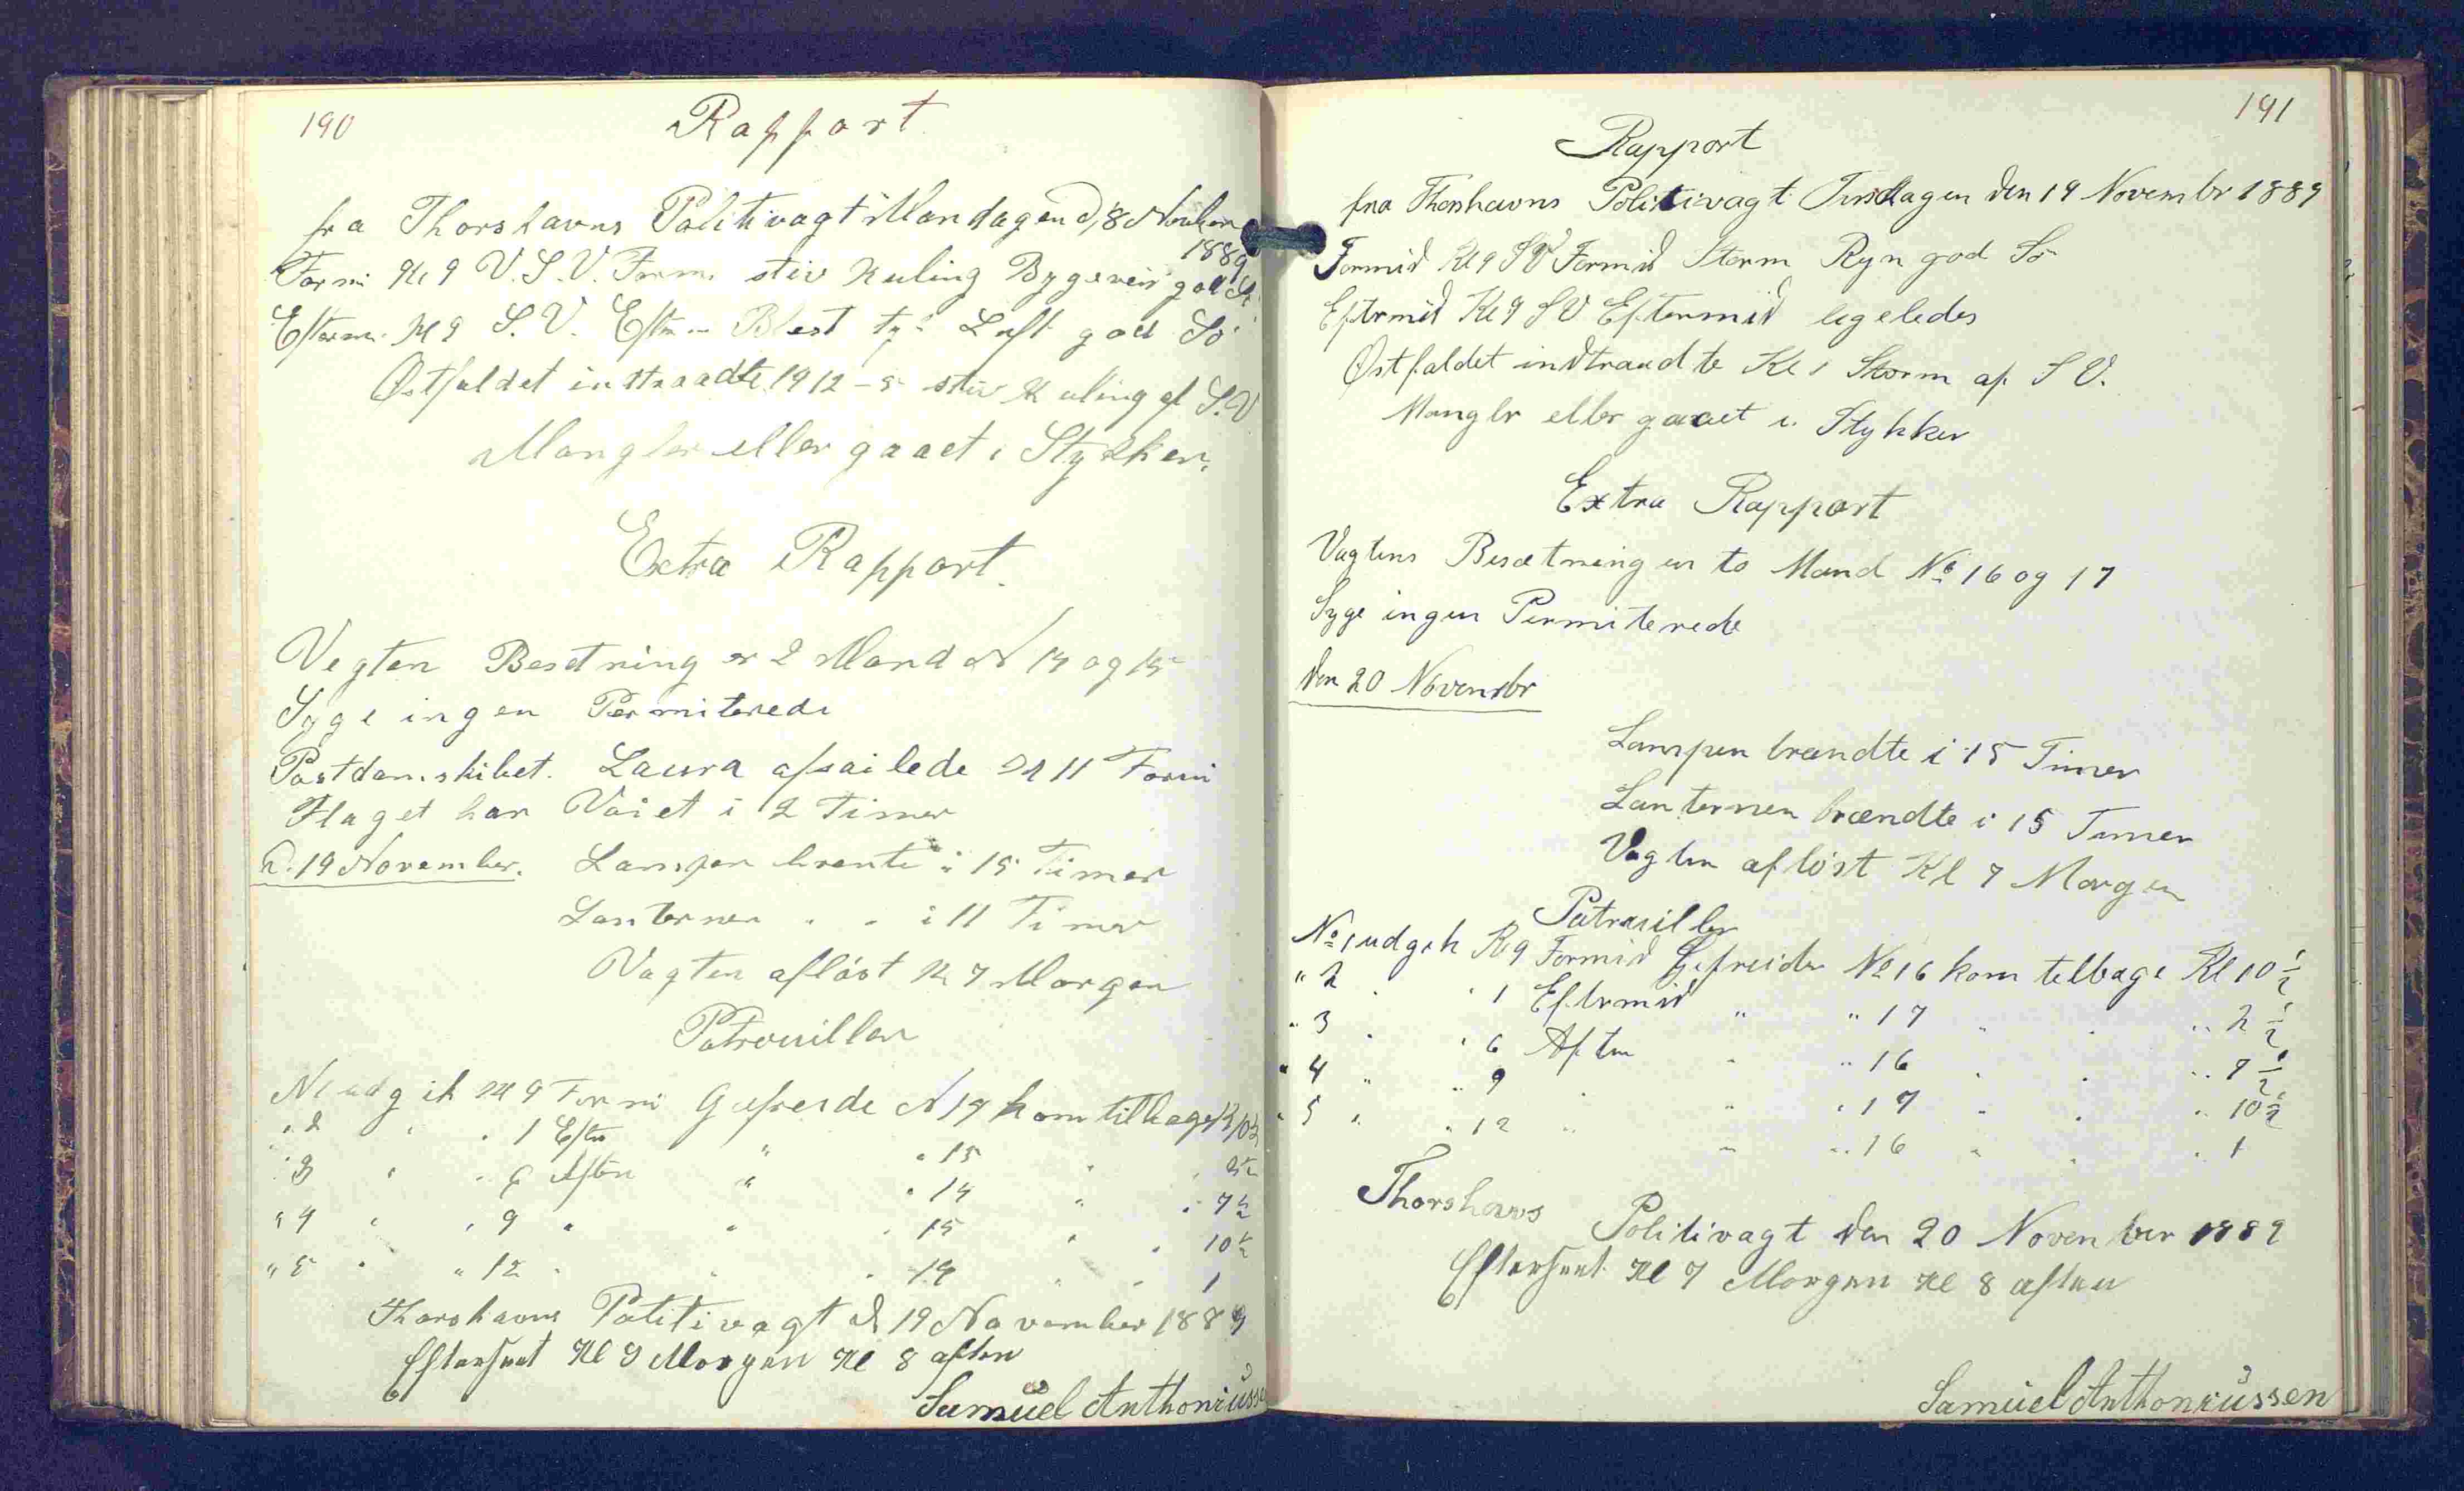 190
Rapport
fra Thorshavns Politivagt Mandagen d, 18 November
1889
Form: Kl 9 V.S.V. Form. stiv Kuling Bygeveir god Sö
Efterm. Kl 9 S.V. Eftm Blest tyk Luft god Sö
Østfaldet instraadte 1912-5 stiv Kuling af S.V
Mangler eller gaaet i Stykker.
Extra Rapport.
Vegten Besetning er 2 Mand N 14 og 15
Syge ingen Permiterede
Postdamskibet. Laura afsailede Kl 11 Formi
Flaget har Vaiet i 2 Timer
d. 19 November. Lampen brente i 15 Timer
Lanternen " " i 11 Timer
Vagten aflöst Kl 7 Morgen
Patrouiller
N 1 udgik Kl 9 Formi Gefreide N 14 kom tilbage Kl 10½
" 2 " " 1 Eftm " " 15 " " 2½
" 3 " " 6 Aften " " 14 " " 7½
" 4 " " 9 " " " 15 " " 10½
" 5 " " 12 " " " 14 " " 1
Thorshavns Politivagt d 19 November 1889
Efterseet Kl 9 Morgen Kl 8 aften
Samüel Anthoniüssen
191
Rapport
fra Thorshavns Politivagt Tirsdagen den 19 Novembr 1889
Formid Kl 9 SV Formid Storm Ryn god Sö
Eftrmid Kl 9 SV Eftermid legeledes
Østfaldet indtraadte Kl 1 Storm af S V.
Manglr ellr gaaet i Stykker
Extra Rapport
Vagtens Besætning er to Mand No 16 og 17
Syge ingen Permiterede
den 20 Novembr
Lampen brændte i 15 Timer
Lanternen brændte i 15 Timer
Vagten aflöst Kl 7 Morgen
Patrouiller
No 1 udgik Kl 9 Formid Gefreider No 16 kom telbage Kl 10½
" 2 " " 1 Eftrmid " " 17 " " " 2½
" 3 " " 6 Aften " " 16 " " " 7½
" 4 " " 9 " " " 17 " " " 10½
" 5 " " 12 " " " 16 " " " 1
Thorshavns Politivagt den 20 November 1889
Efterseet Kl 7 Morgen Kl 8 aften
Samüel Anthoniüssen